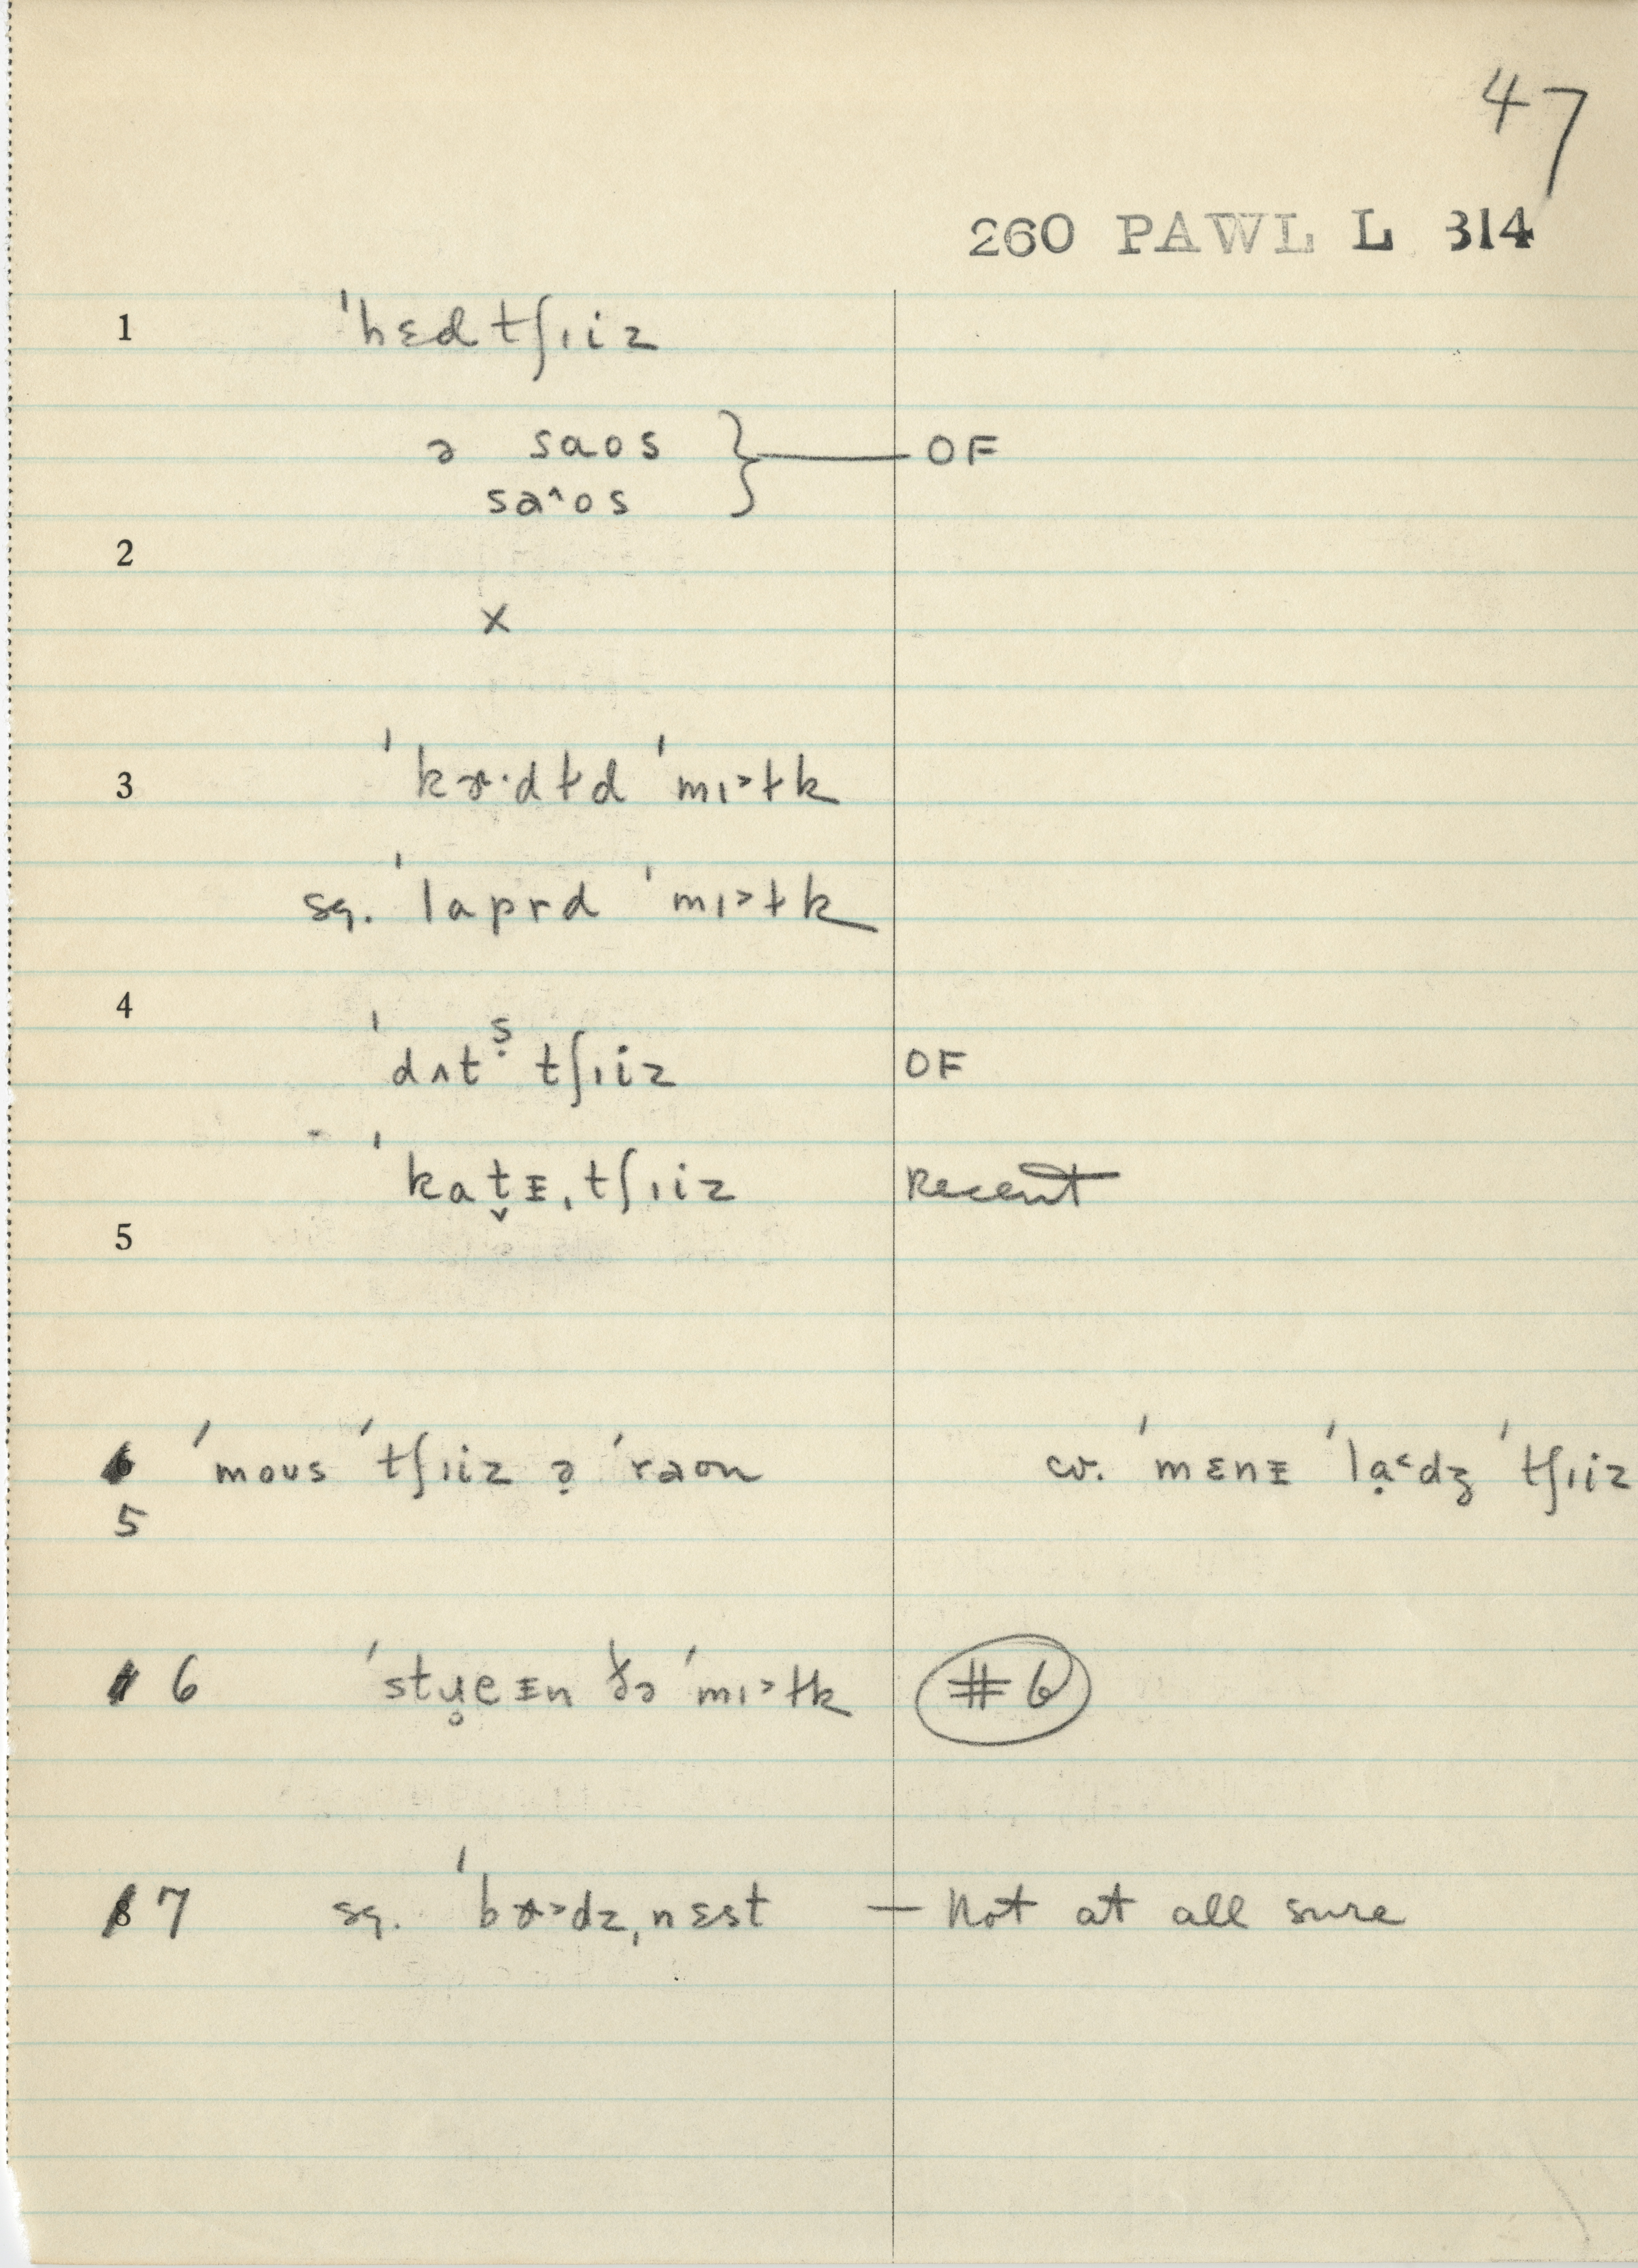 47
260 PAWL L 314
1 ˈhɛd tʃɪiz
ə saos } — OF
sa^os
2
x
3 ˈkɚ·dɫd ˈmɪ>ɫk
sq. ˈlaprd ˈmɪ>ɫk
4
ˈdʌtṣ tʃɪiz OF
ˈkat̬ɪˌtʃɪiz Recent
5
6 ˈmous ˈtʃɪiz ə̣ ˈraon cv. ˈmɛnɪ ˈlạ<dʒ ˈtʃɪiz
5
6 ˈstɥ̥eɪn ðə ˈmɪ>ɫk #6
8 7 sq. ˈbɚ>dzˌnɛst — Not at all sure